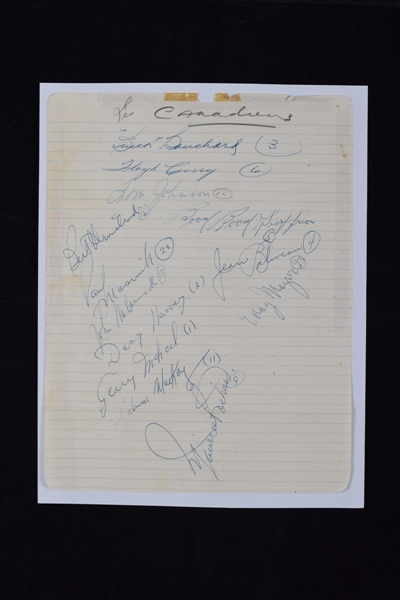 Les Canadiens
"Butch" Bouchard (3)
Floyd Curry (6)
Tom Johnson (10)
"Boom Boom" Geoffrion
Bert Olmstead
Jean Béliveau (4)
Paul Masnick (22)
Eddy Mazur
John McCormack
Doug Harvey (2)
Gerry McNeil (1)
Calum MacKay (11)
Maurice Richard